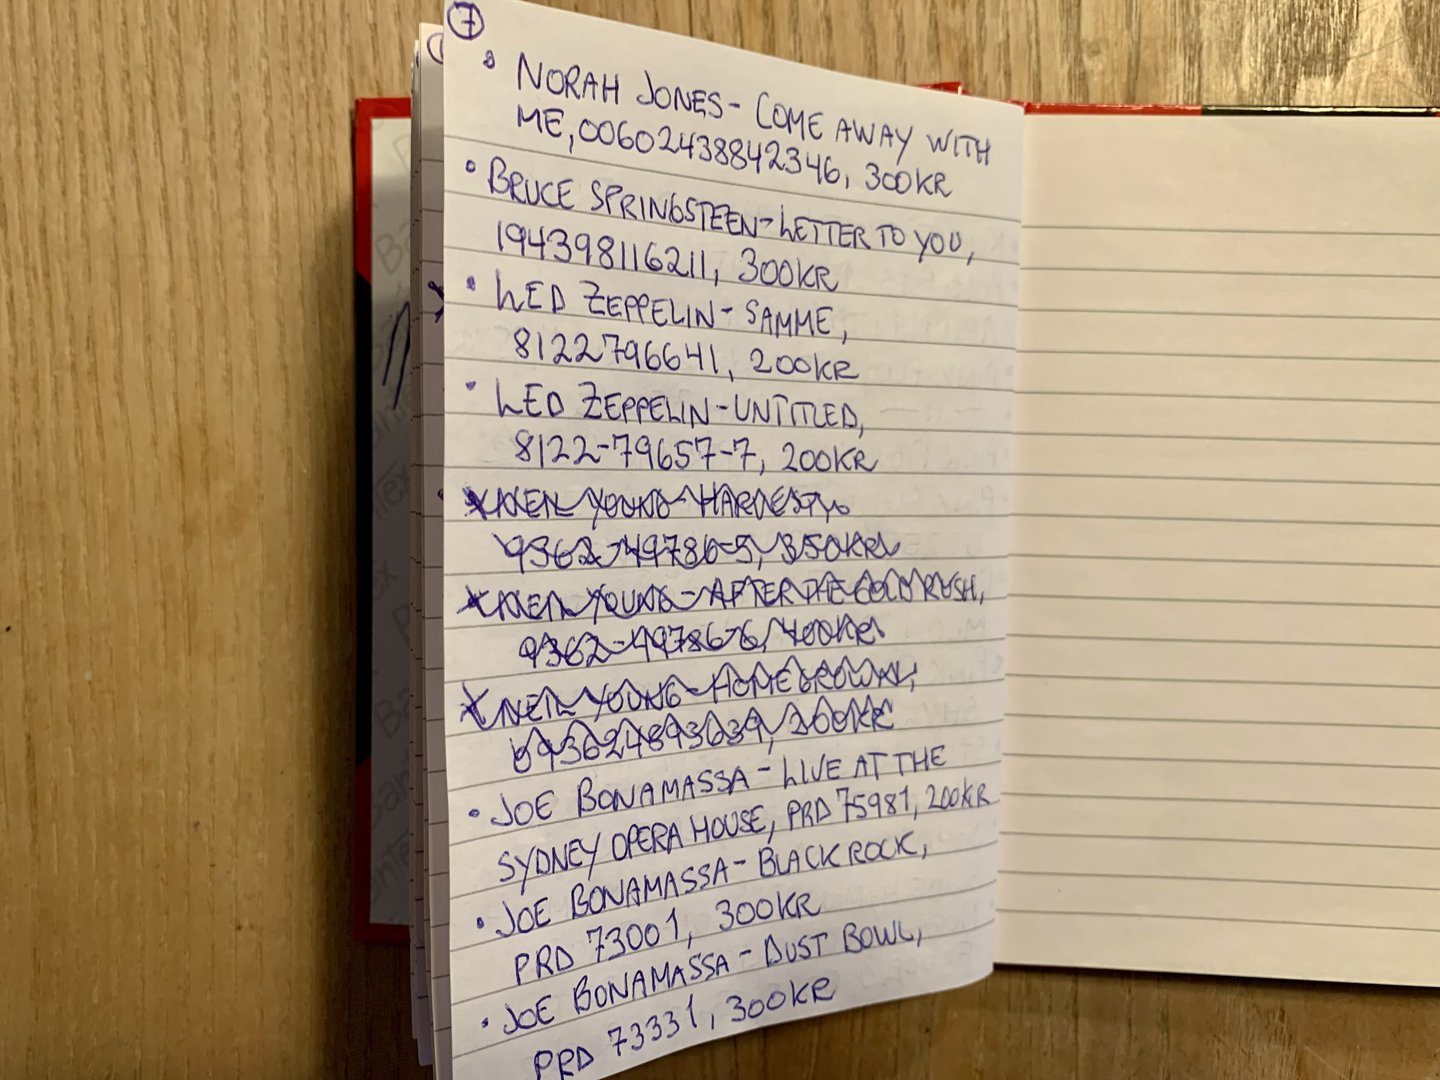 7
• NORAH JONES - COME AWAY WITH
ME, 00602438842346, 300KR
• BRUCE SPRINGSTEEN - LETTER TO YOU,
194398116211, 300KR
• LED ZEPPELIN - SAMME,
8122796641, 200KR
• LED ZEPPELIN - UNTITLED,
8122-79657-7, 200KR
NEIL YOUNG - HARVEST,
9362-49786-5, 350KR
NEIL YOUNG - AFTER THE GOLD RUSH,
9362-49786-6, 400KR
NEIL YOUNG - HOMEGROWN,
093624893639, 200KR
• JOE BONAMASSA - LIVE AT THE
SYDNEY OPERA HOUSE, PRD 75981, 200KR
• JOE BONAMASSA - BLACK ROCK,
PRD 73001, 300KR
• JOE BONAMASSA - DUST BOWL,
PRD 73331, 300KR